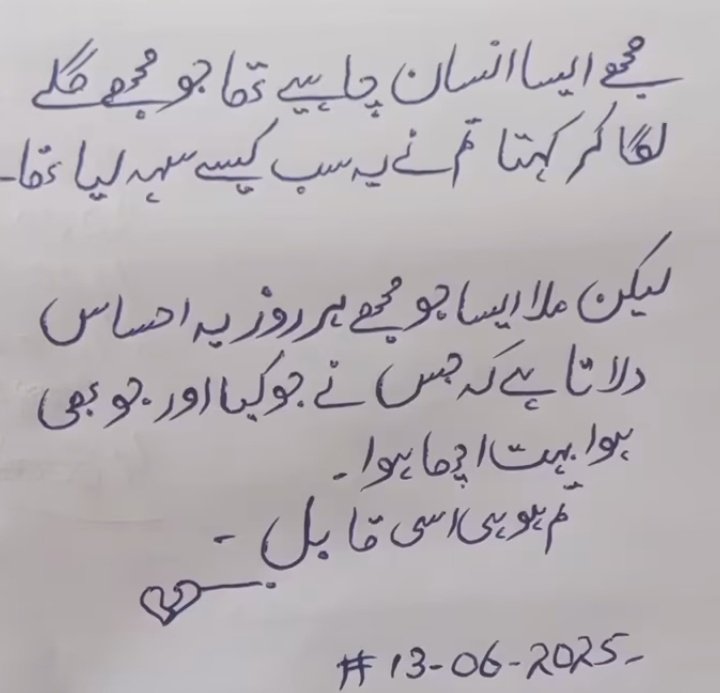 مجھے ایسا انسان چاہیے تھا جو مجھے گلے
لگا کر کہتا تم نے یہ سب کیسے سہہ لیا تھا۔
لیکن ملا ایسا جو مجھے ہر روز یہ احساس
دلاتا ہے کہ جس نے جو کیا اور جو بھی
ہوا بہت اچھا ہوا۔
تم ہو ہی اسی قابل۔
# 13-06-2025-